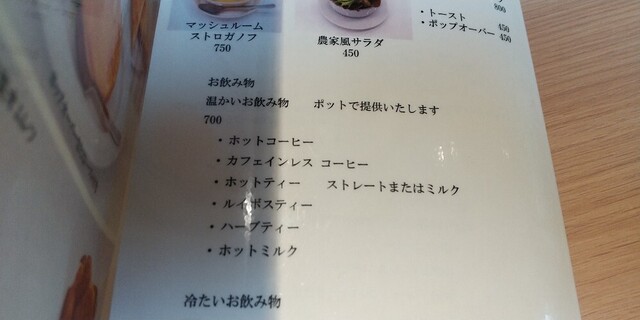 800
・トースト
450
・ポップオーバー 450
マッシュルーム
ストロガノフ
750
農家風サラダ
450
お飲み物
温かいお飲み物 ポットで提供いたします
700
・ホットコーヒー
・カフェインレス コーヒー
・ホットティー ストレートまたはミルク
・ルイボスティー
・ハーブティー
・ホットミルク
冷たいお飲み物